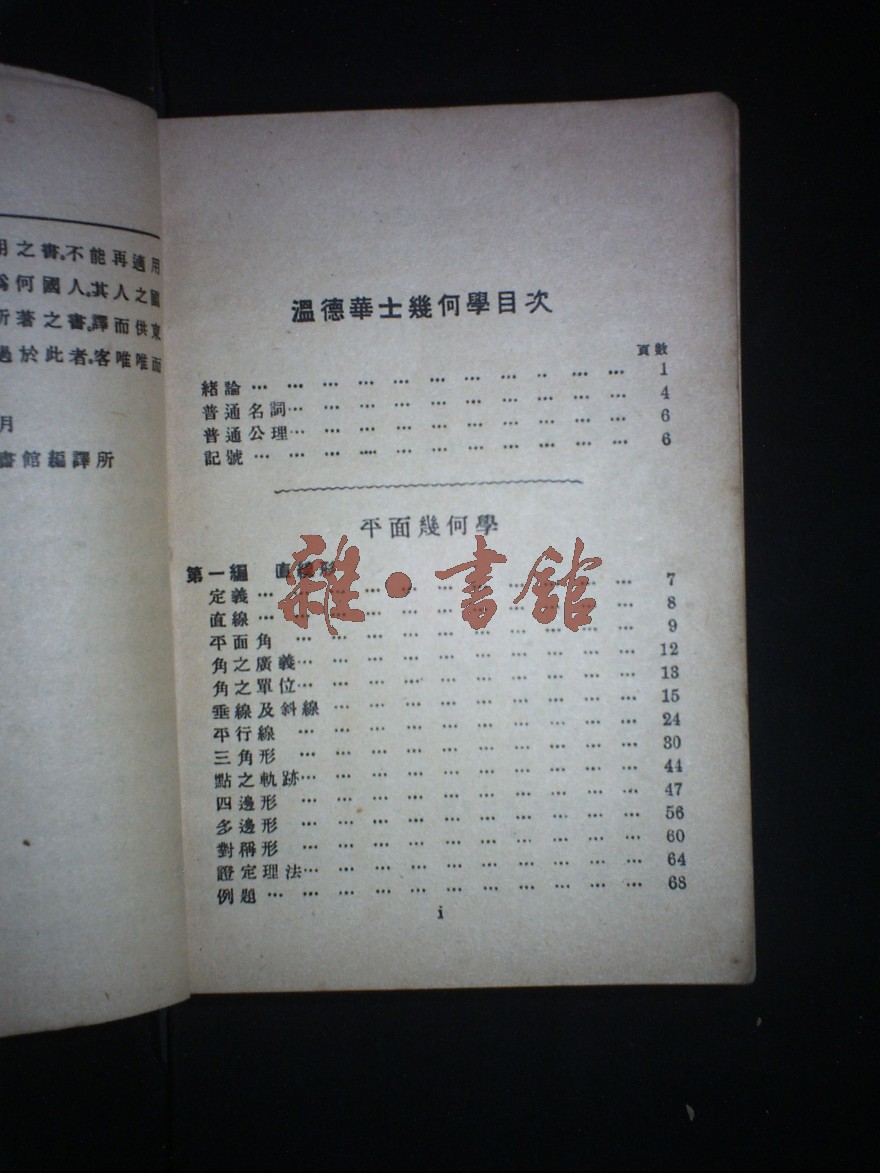 用之書。不能再適用
何國人。其人之國
所著之書。譯而供東
過於此者。客唯唯而
月
書館編譯所
溫德華士幾何學目次
頁數
緒論 … … … … … … … … … … … 1
普通名詞… … … … … … … … … … 4
普通公理… … … … … … … … … … 6
記號 … … … … … … … … … … … 6
平面幾何學
第一編 直線形
定義 … … … … … … … … … … … 7
直線 … … … … … … … … … … … 8
平面角 … … … … … … … … … … 9
角之廣義… … … … … … … … … … 12
角之單位… … … … … … … … … … 13
垂線及斜線 … … … … … … … … … 15
平行線 … … … … … … … … … … 24
三角形 … … … … … … … … … … 30
點之軌跡… … … … … … … … … … 44
四邊形 … … … … … … … … … … 47
多邊形 … … … … … … … … … … 56
對稱形 … … … … … … … … … … 60
證定理法… … … … … … … … … … 64
例題 … … … … … … … … … … … 68
i
雜·書館